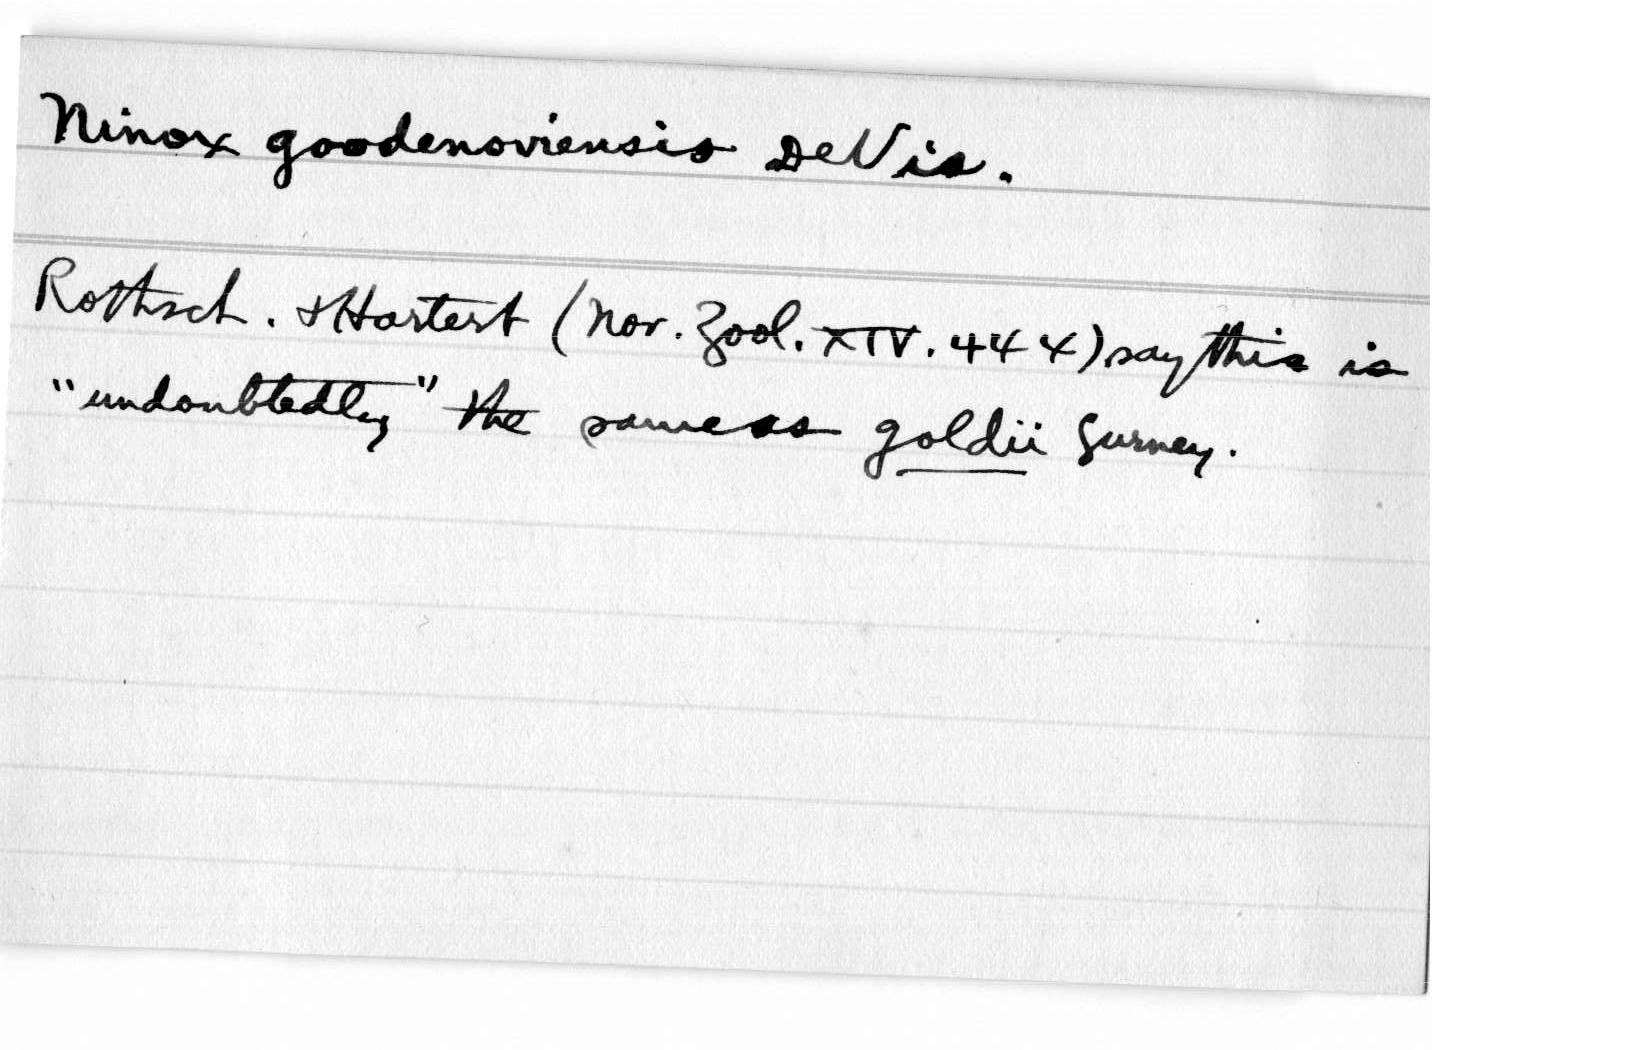 Ninox goodenoviensis DeVis.
Rothsch. & Hartert (Nov. Zool. XIV. 444) say this is
"undoubtedly" the same as goldii Gurney.